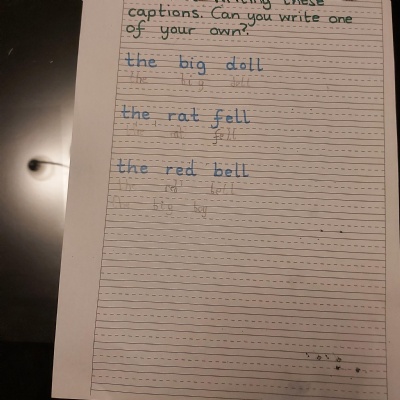 these
captions. Can you write one
of your own?
the big doll
the big doll
the rat fell
the rat fell
the red bell
the red bell
the big